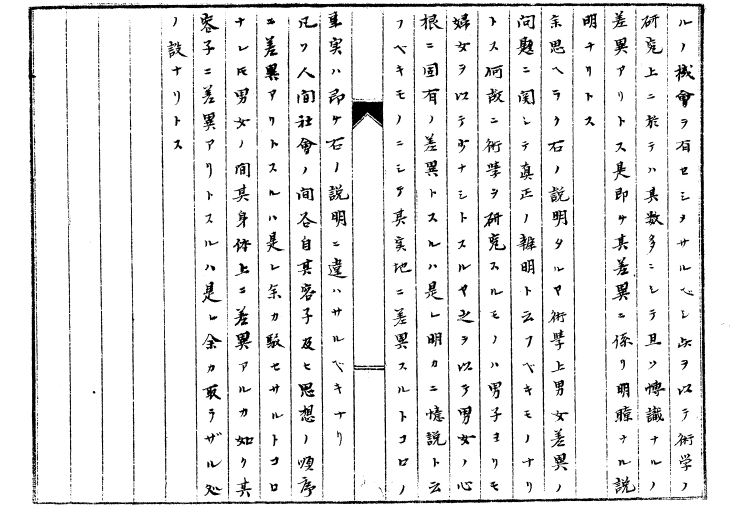 ルノ機會ヲ有セシヲサルベシ此ヲ以テ術学ノ
研究上ニ於テハ其数多ニシテ且ツ博識ナルノ
差異アリトス是即チ其差異ニ係リ明瞭ナル説
明ナリトス
余思ヘラク右ノ説明タルヤ術學上男女差異ノ
問題ニ関シテ真正ノ辨明ト云フベキモノナリ
トス何故ニ術學ヲ研究スルモノハ男子ヨリモ
婦女ヲ以テ少ナシトスルヤ之ヲ以テ男女ノ心
根ニ固有ノ差異トスルハ是レ明カニ憶説ト云
フベキモノニシテ其実地ニ差異スルトコロノ
事実ハ即チ右ノ説明ニ違ハサルベキナリ
凡ソ人間社會ノ間各自其容子及ヒ思想ノ順序
ニ差異アリトスルハ是レ余カ駁セサルトコロ
ナレ𪜈男女ノ間其身体上ニ差異アルカ如ク其
容子ニ差異アリトスルハ是レ余カ取ラザル処
ノ説ナリトス